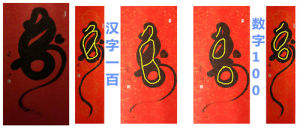 汉字一百
数字100